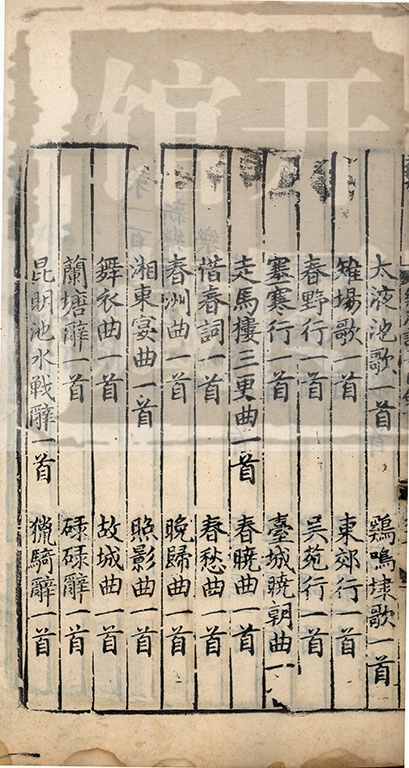 太液池歌一首　鷄鳴埭歌一首
雉場歌一首　東郊行一首
春野行一首　吴苑行一首
塞寒行一首　臺城曉朝曲一
走馬樓三更曲一首　春曉曲一首
惜春詞一首　春愁曲一首
春洲曲一首　晚歸曲一首
湘東宴曲一首　照影曲一首
舞衣曲一首　故城曲一首
蘭塘辭一首　碌碌辭一首
昆明池水戰辭一首　獵騎辭一首
馆开